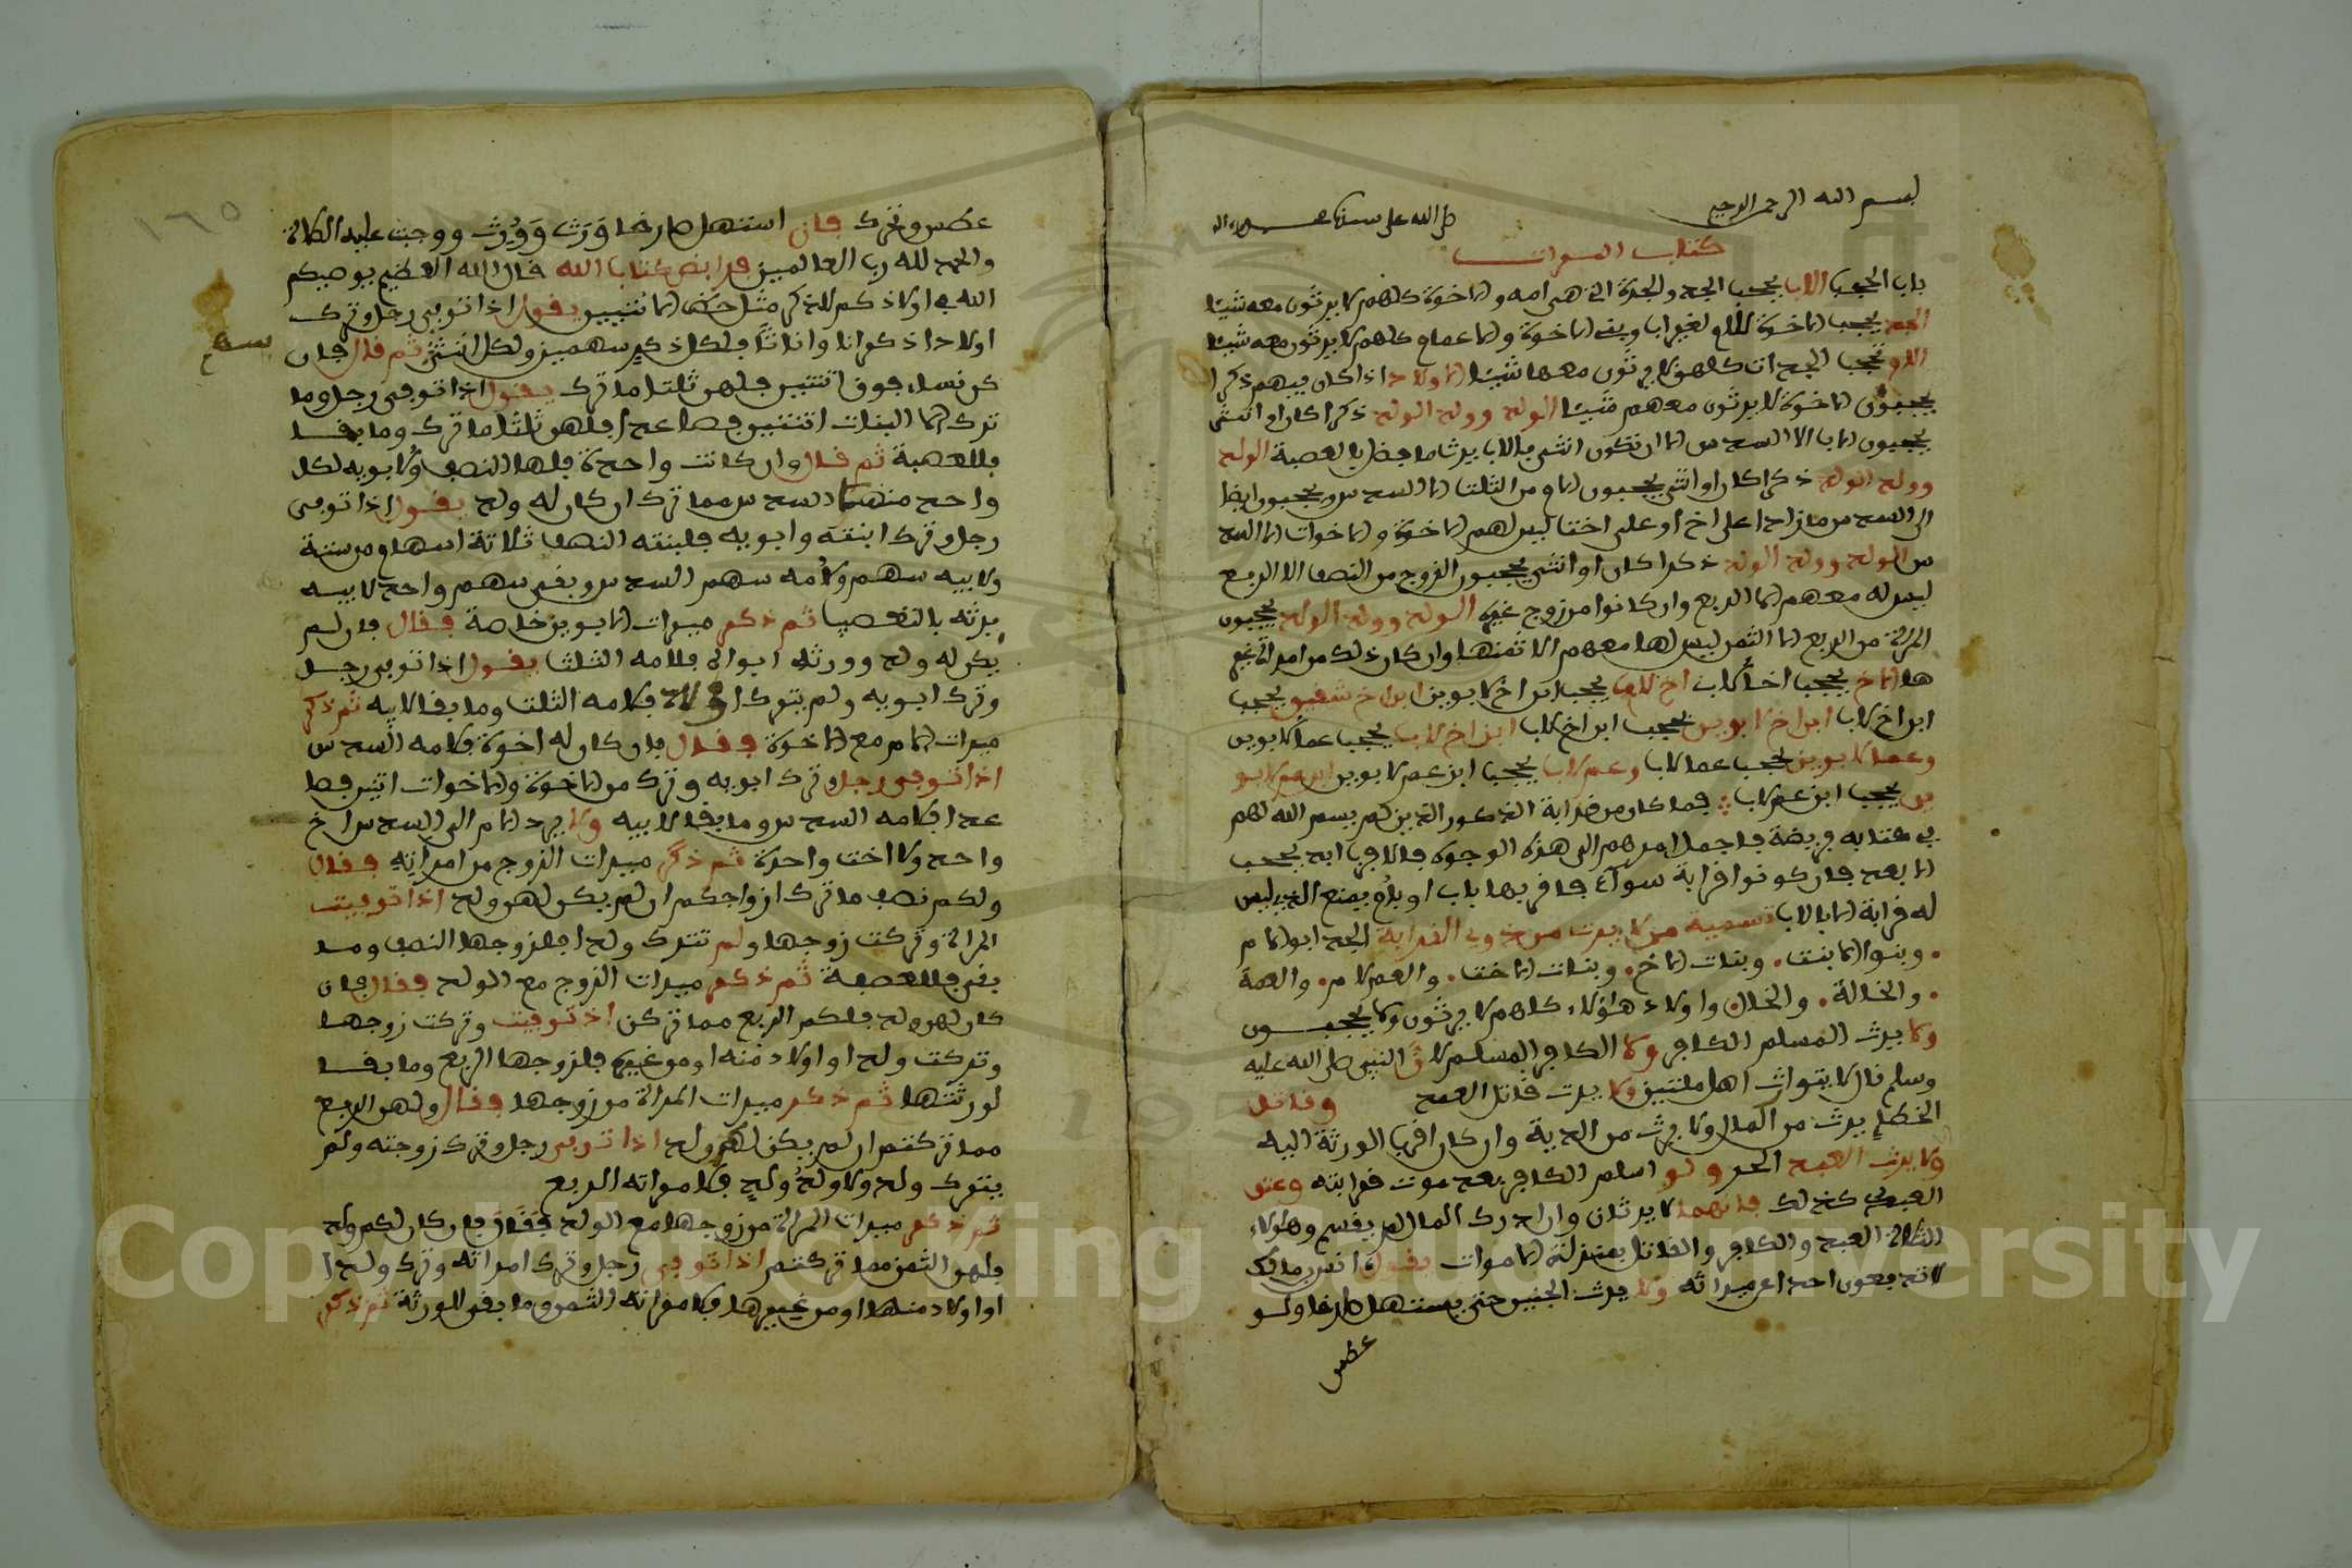 بسم الله الرحمن الرحيم صلى الله على سيدنا محمد وآله
كتاب الميراث
باب الحجب الاب يحجب الجد والجدة التي هي امه والاخوة كلهم لا يرثون معه شيئا
الجد يحجب الاخوة للام لغير اب وبني الاخوة والاعمام كلهم لا يرثون معه شيئا
الام تحجب الجدات كلهن لا يرثون معها شيئا الاولاد اذا كان فيهم ذكرا
يحجبون الاخوة لا يرثون معهم شيئا الولد وولد الولد ذكرا كان او انثى
يحجبون الاب الا السدس الا ان تكون انثى فالاب يرث ما فضل بالعصبة الولد
وولد الولد ذكرا كان او انثى يحجبون الام من الثلث الا السدس ويحجبون ايضا
الى السدس ما زاد على اخ او على اخت ليس لهم الاخوة والاخوات الا السد
س الولد وولد الولد ذكرا كان او انثى يحجبون الزوج من النصف الا الربع
ليس له معهم الا الربع وان كانوا من زوج غيره الولد وولد الولد يحجبون
المراة من الربع الا الثمن ليس لها معهم الا ثمنها وان كان ذلك من امراة غير
ها الاخ يحجب اخا لاب اخ للاب يحجب ابن اخ لابوين ابن اخ شقيق يحجب
ابن اخ لاب ابن اخ لابوين يحجب ابن اخ لاب ابن اخ لاب يحجب عما لابوين
وعما لابوين يحجب عما لاب وعم لاب يحجب ابن عم لابوين ابن عم لابو
ين يحجب ابن عم لاب فما كان من قرابة الذكور الذين لم يسم الله لهم
في كتابه فريضة فاجمل امرهم الى هذه الوجوه فالاقرب ابد يحجب
الابعد فان كونوا قرابة سواء فاقربها باب او بام يمنع الذي ليس
له قرابة الا بالاب تسمية من لا يرث من ذوي القرابة الجد ابو الام
وبنوا الابنت وبنات الاخ وبنات الاخت والعم لام والعمة
والخالة والخال واولاد هؤلاء كلهم لا يرثون ولا يحجبون
ولا يرث المسلم الكافر ولا الكافر المسلم لان النبي صلى الله عليه
وسلم قال لا يتوارث اهل ملتين ولا يرث قاتل العمد وقاتل
الخطإ يرث من المال ولا يرث من الدية وان كان اقرب الورثة اليه
ولا يرث العبد الحر ولو اسلم الكافر بعد موت قرابته وعتق
العبد كذلك فانهما لا يرثان وان ادرك المال لم يقسم وهؤلاء
الثلاثة العبد والكافر والقاتل بمنزلة الاموات يقول
لا تدفعون احدا عن ميراثه ولا يرث الجنين حتى يستهل صارخا ولو
عطس
عطس وتحرك فان استهل صارخا ورث وورث ووجبت عليه الصلاة
والحمد لله رب العالمين فرائض كتاب الله قال الله العظيم يوصيكم
الله في اولادكم للذكر مثل حظ الانثيين يقول اذا توفي رجل وترك
اولادا ذكرانا واناثا فلكل ذكر سهمين ولكل انثى ثم قال فان
سهم
كن نساء فوق اثنتين فلهن ثلثا ما ترك يقول اذا توفي رجل وما
ترك الا البنات اثنتين فصاعدا فلهن ثلثا ما ترك وما بقا
فللعصبة ثم قال وان كانت واحدة فلها النصف ولابويه لكل
واحد منهما السدس مما ترك ان كان له ولد يقول اذا توفي
رجل وترك ابنته وابويه فلبنته النصف ثلاثة اسهام من ستة
ولابيه سهم ولامه سهم السدس وبقي سهم واحد لابيه
يرثه بالتعصيب ثم ذكر ميراث الابوين خاصة فقال فان لم
يكن له ولد وورثه ابواه فلامه الثلث يقول اذا توفي رجل
وترك ابويه ولم يترك اولاد فلامه الثلث وما بقا لابيه ثم ذكر
ميراث الام مع الاخوة فقال فان كان له اخوة فلامه السدس
اذا توفي رجل وترك ابويه وترك من الاخوة والاخوات اثنين فصا
عدا فلامه السدس وما بقا لابيه ولا يرد الام الى السدس اخ
واحد ولا اخت واحدة ثم ذكر ميراث الزوج من امراته فقال
ولكم نصف ما ترك ازواجكم ان لم يكن لهن ولد اذا توفيت
المراة وتركت زوجها ولم تترك ولدا فلزوجها النصف وما
بقي فللعصبة ثم ذكر ميراث الزوج مع الولد فقال فان
كان لهن ولد فلكم الربع مما تركن اذ توفيت وتركت زوجها
وتركت ولدا او اولاد منه او من غيره فلزوجها الربع وما بقا
لورثتها ثم ذكر ميراث المراة من زوجها فقال ولهن الربع
مما تركتم ان لم يكن لكم ولد اذا توفي رجل وترك زوجته ولم
يترك ولد ولا ولد ولد فلامراته الربع
ثم ذكر ميراث المراة من زوجها مع الولد فقال فان كان لكم ولد
فلهن الثمن مما تركتم اذا توفي رجل وترك امراته وترك ولدا
او اولاد منها او من غيرها فلامراته الثمن وما بقي للورثة ثم ذكر
١٦٥
Copyright © King Saud University